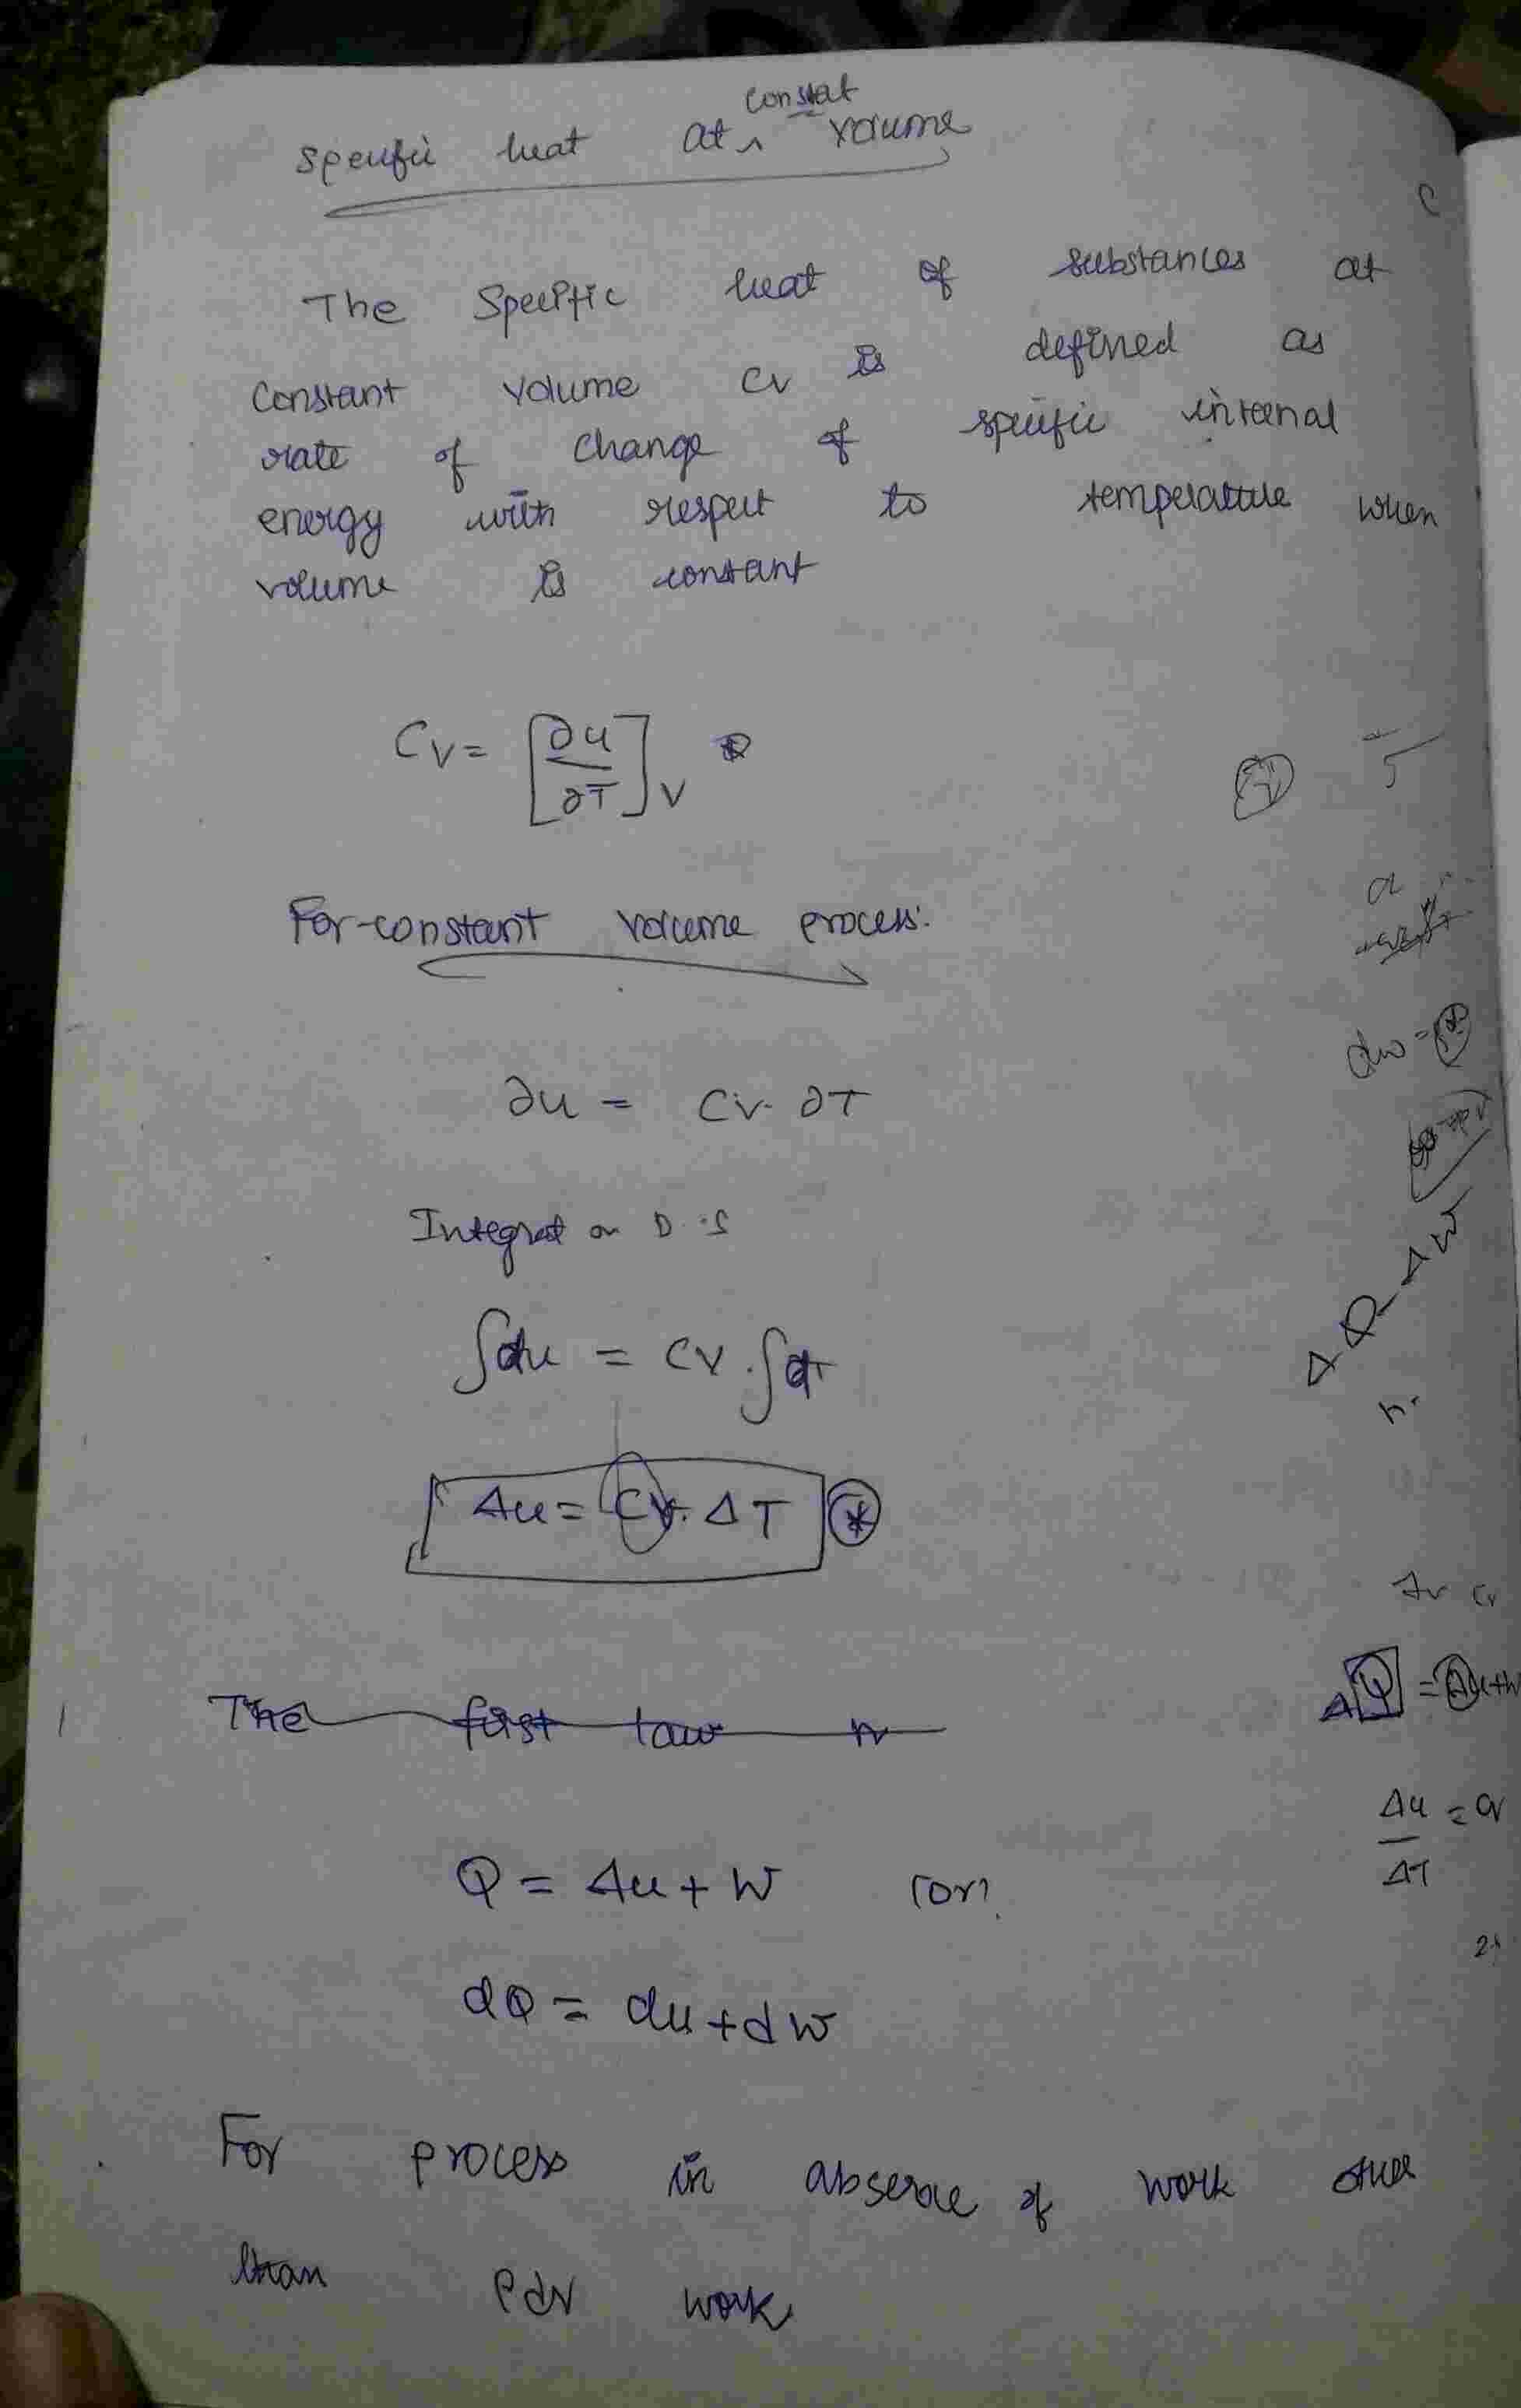 Specific heat at constat volume
The Specific heat of substances at
Constant volume Cv is defined as
rate of change of specific internal
energy with respect to temperature when
volume is constant
Cv = [∂u/∂T]v
For constant volume process:
∂u = Cv. ∂T
Integrat on B.S
∫du = Cv.∫dT
Δu = Cv. ΔT *
The first law
Q = Δu + W (or)
dQ = du + dw
For process in absence of work other
than Pdv work
dw =
ΔQ - Δw
ΔQ = Δu+w
Δu/ΔT = Cv